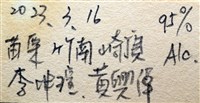 2023.3.16 95%
苗栗竹南崎頂 Alc.
李坤瑄 黃興倬